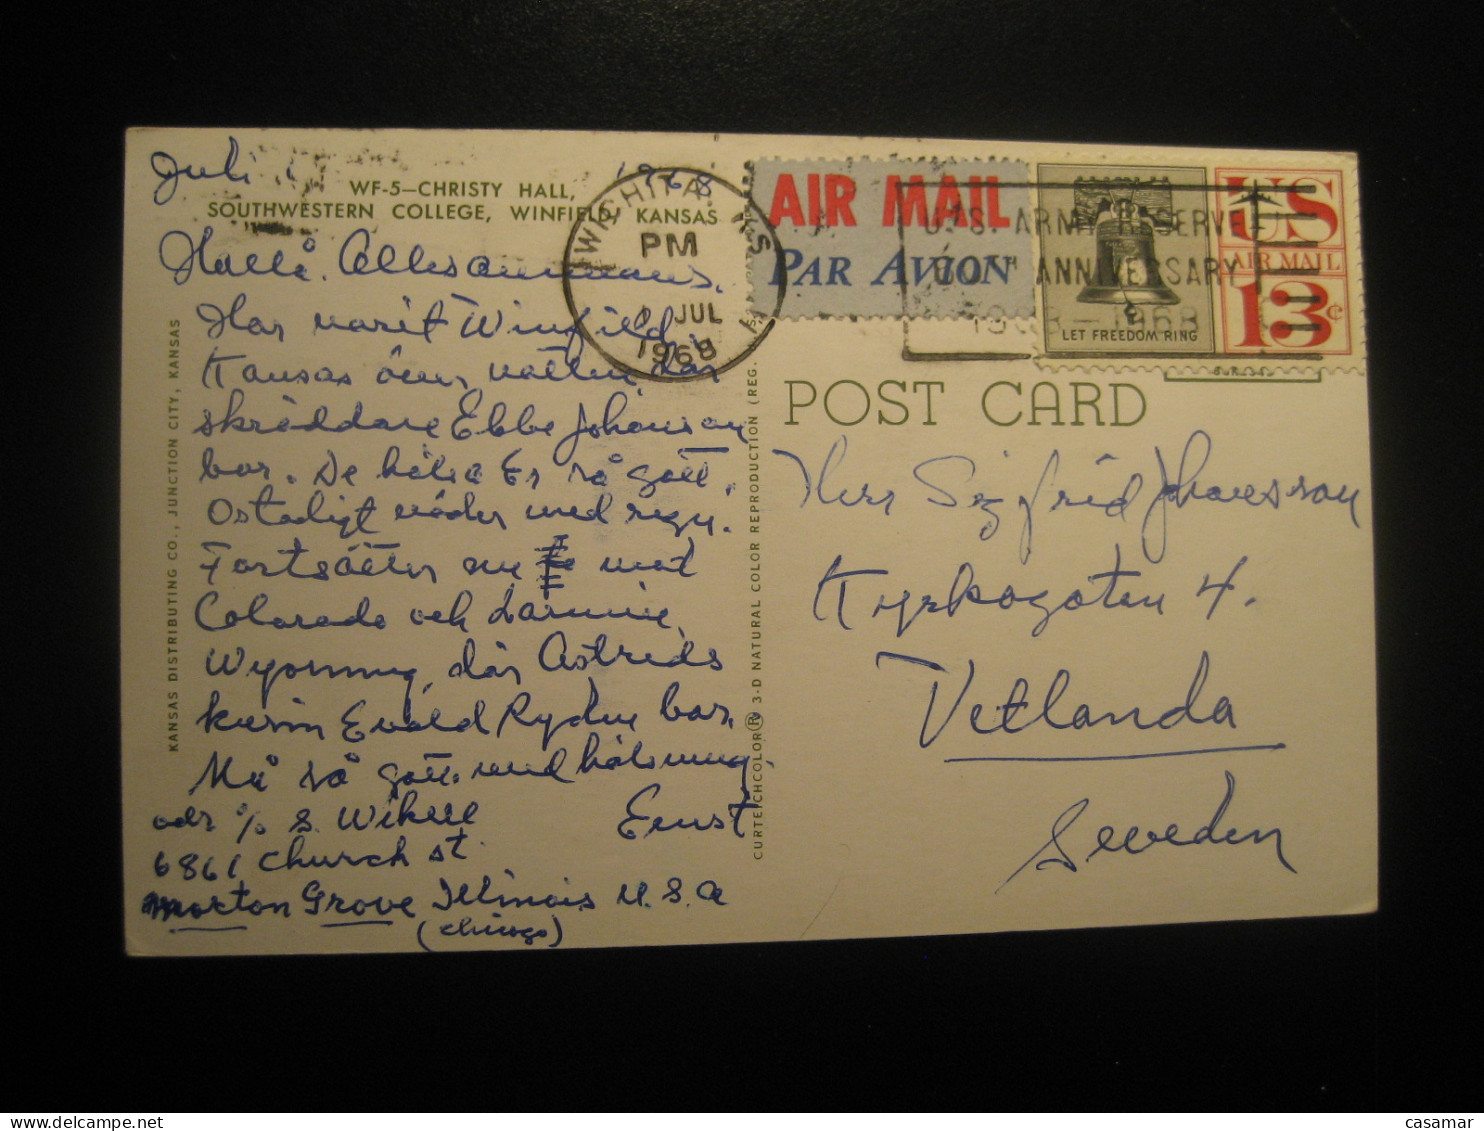 Juli 1968
WF-5—CHRISTY HALL,
SOUTHWESTERN COLLEGE, WINFIELD, KANSAS
Hallå Allesammans.
Har varit Winfield,
Kansas över natten där
skräddare Ebbe Johanson
bor. De hälsa Er så gott.
Ostadigt väder med regn.
Fortsätter nu mot
Colorado och Laramie,
Wyoming, där Astrids
kusin Evald Rydén bor.
Må så gott med hälsning
Ernst
adr % S. Wikell
6861 Church st.
Morton Grove Illinois U.S.A
(Chicago)
KANSAS DISTRIBUTING CO., JUNCTION CITY, KANSAS
CURTEICHCOLOR® 3-D NATURAL COLOR REPRODUCTION (REG. U.S.
WICHITA, KS
PM
JUL
1968
AIR MAIL
PAR AVION
U.S. ARMY RESERVE
60TH ANNIVERSARY
1908-1968
LET FREEDOM RING
US
AIR MAIL
13c
POST CARD
Herr Sigfrid Johansson
Kyrkogatan 4.
Vetlanda
Sweden
casamar